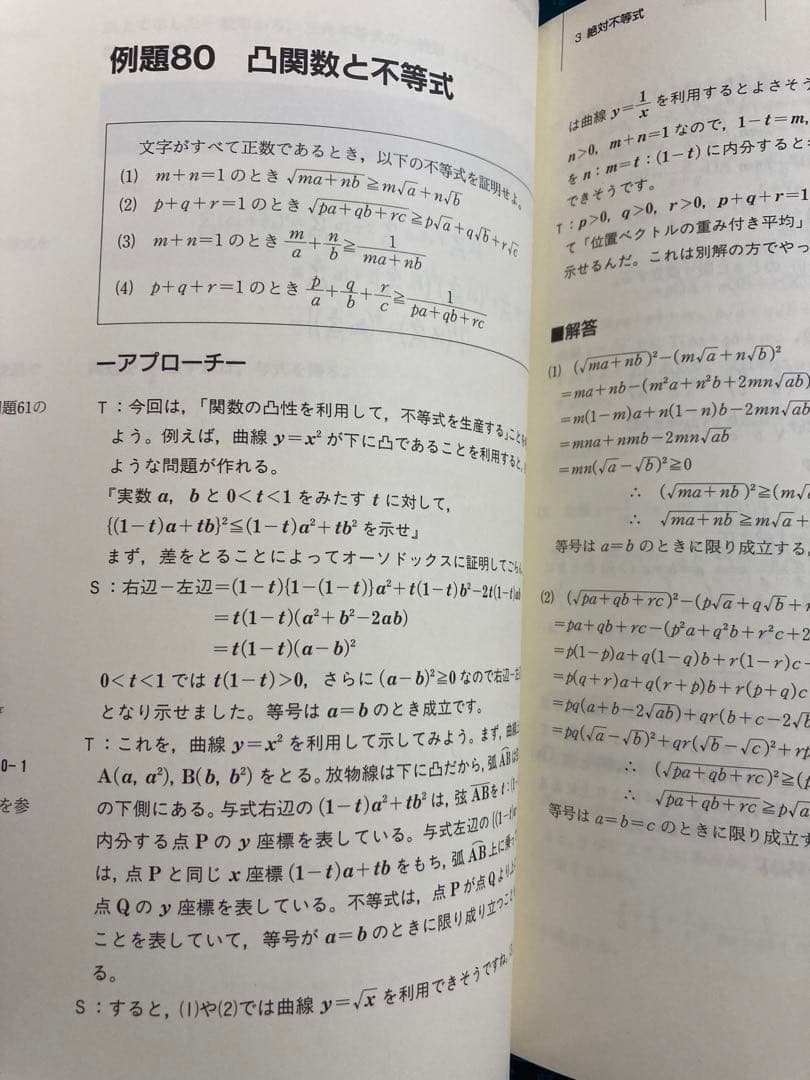 例題80 凸関数と不等式
文字がすべて正数であるとき，以下の不等式を証明せよ。
(1) m+n=1のとき √(ma+nb)≧m√a+n√b
(2) p+q+r=1のとき √(pa+qb+rc)≧p√a+q√b+r√c
(3) m+n=1のとき m/a+n/b≧1/(ma+nb)
(4) p+q+r=1のとき p/a+q/b+r/c≧1/(pa+qb+rc)
ーアプローチー
T：今回は，「関数の凸性を利用して，不等式を生産する」こと
よう。例えば，曲線 y=x²が下に凸であることを利用すると，
ような問題が作れる。
『実数 a，b と 0<t<1 をみたす t に対して，
{(1-t)a+tb}²≦(1-t)a²+tb² を示せ』
まず，差をとることによってオーソドックスに証明してごらん
S：右辺－左辺=(1-t){1-(1-t)}a²+t(1-t)b²-2t(1-t)ab
=t(1-t)(a²+b²-2ab)
=t(1-t)(a-b)²
0<t<1 では t(1-t)>0，さらに (a-b)²≧0 なので右辺－
となり示せました。等号は a=b のとき成立です。
T：これを，曲線 y=x² を利用して示してみよう。まず，曲線
A(a, a²), B(b, b²) をとる。放物線は下に凸だから，弧AB
の下側にある。与式右辺の (1-t)a²+tb² は，弦ABを t：
内分する点 P の y 座標を表している。与式左辺の {(1-t)
は，点 P と同じ x 座標 (1-t)a+tb をもち，弧 AB 上に乗っ
点 Q の y 座標を表している。不等式は，点 P が点 Q より
ことを表していて，等号が a=b のときに限り成り立つこと
る。
S：すると，(1)や(2)では曲線 y=√x を利用できそうですね。
題61の
0-1
を参
3 絶対不等式
は曲線 y=1/x を利用するとよさそう
n>0，m+n=1 なので，1-t=m，
を n：m=t：(1-t) に内分すると
できそうです。
T：p>0，q>0，r>0，p+q+r=1
て「位置ベクトルの重み付き平均」
示せるんだ。これは別解の方でやっ
■解答
(1) (√(ma+nb))²-(m√a+n√b)²
=ma+nb-(m²a+n²b+2mn√(ab))
=m(1-m)a+n(1-n)b-2mn√(ab)
=mna+nmb-2mn√(ab)
=mn(√a-√b)²≧0
∴ (√(ma+nb))²≧(m√a
∴ √(ma+nb)≧m√a+
等号は a=b のときに限り成立する。
(2) (√(pa+qb+rc))²-(p√a+q√b+
=pa+qb+rc-(p²a+q²b+r²c+2
=p(1-p)a+q(1-q)b+r(1-r)c-
=p(q+r)a+q(r+p)b+r(p+q)c
=pq(a+b-2√(ab))+qr(b+c-2√b
=pq(√a-√b)²+qr(√b-√c)²+r
∴ (√(pa+qb+rc))²≧(p
∴ √(pa+qb+rc)≧p√a
等号は a=b=c のときに限り成立す